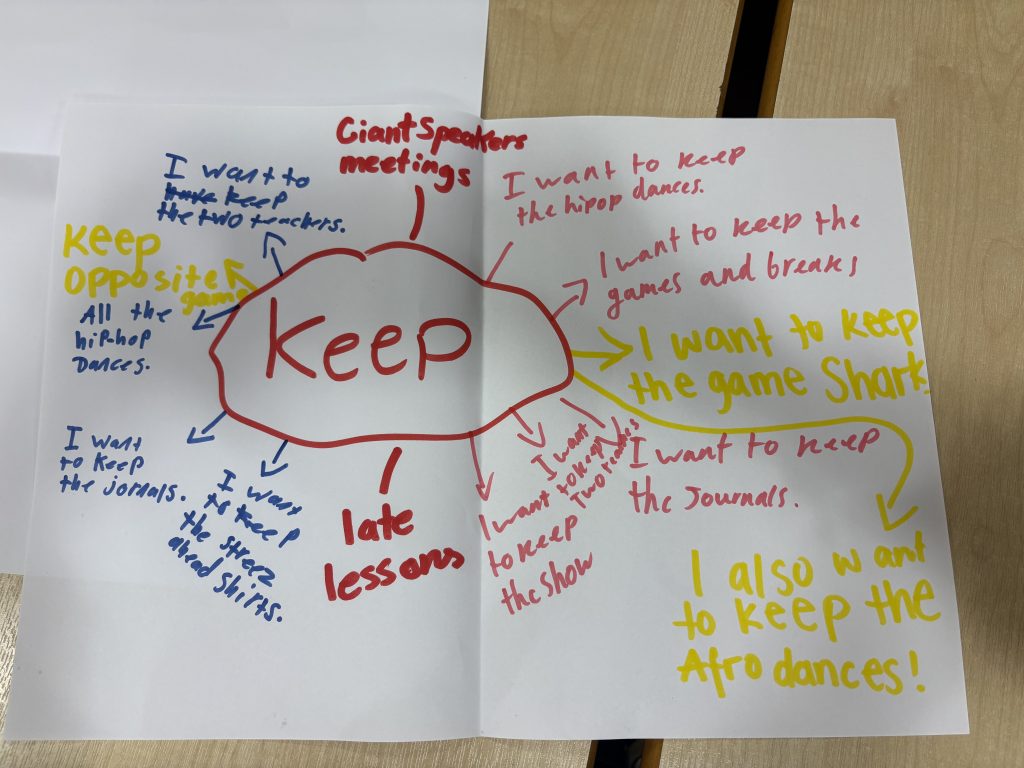 Keep
Ciant Speakers
meetings
I want to keep
the hipop dances.
I want to keep the
games and breaks
I want to keep
the game Shark
I also want
to keep the
Afro dances!
I want to keep
the Journals.
I want
to keep
Two
I want
to keep
the show
late
lessons
I want
to keep
the streez
ahead Shirts.
I want
to keep
the jornals.
All the
hip-hop
Dances.
Keep
Opposite
game
I want to
keep
the two teachers.